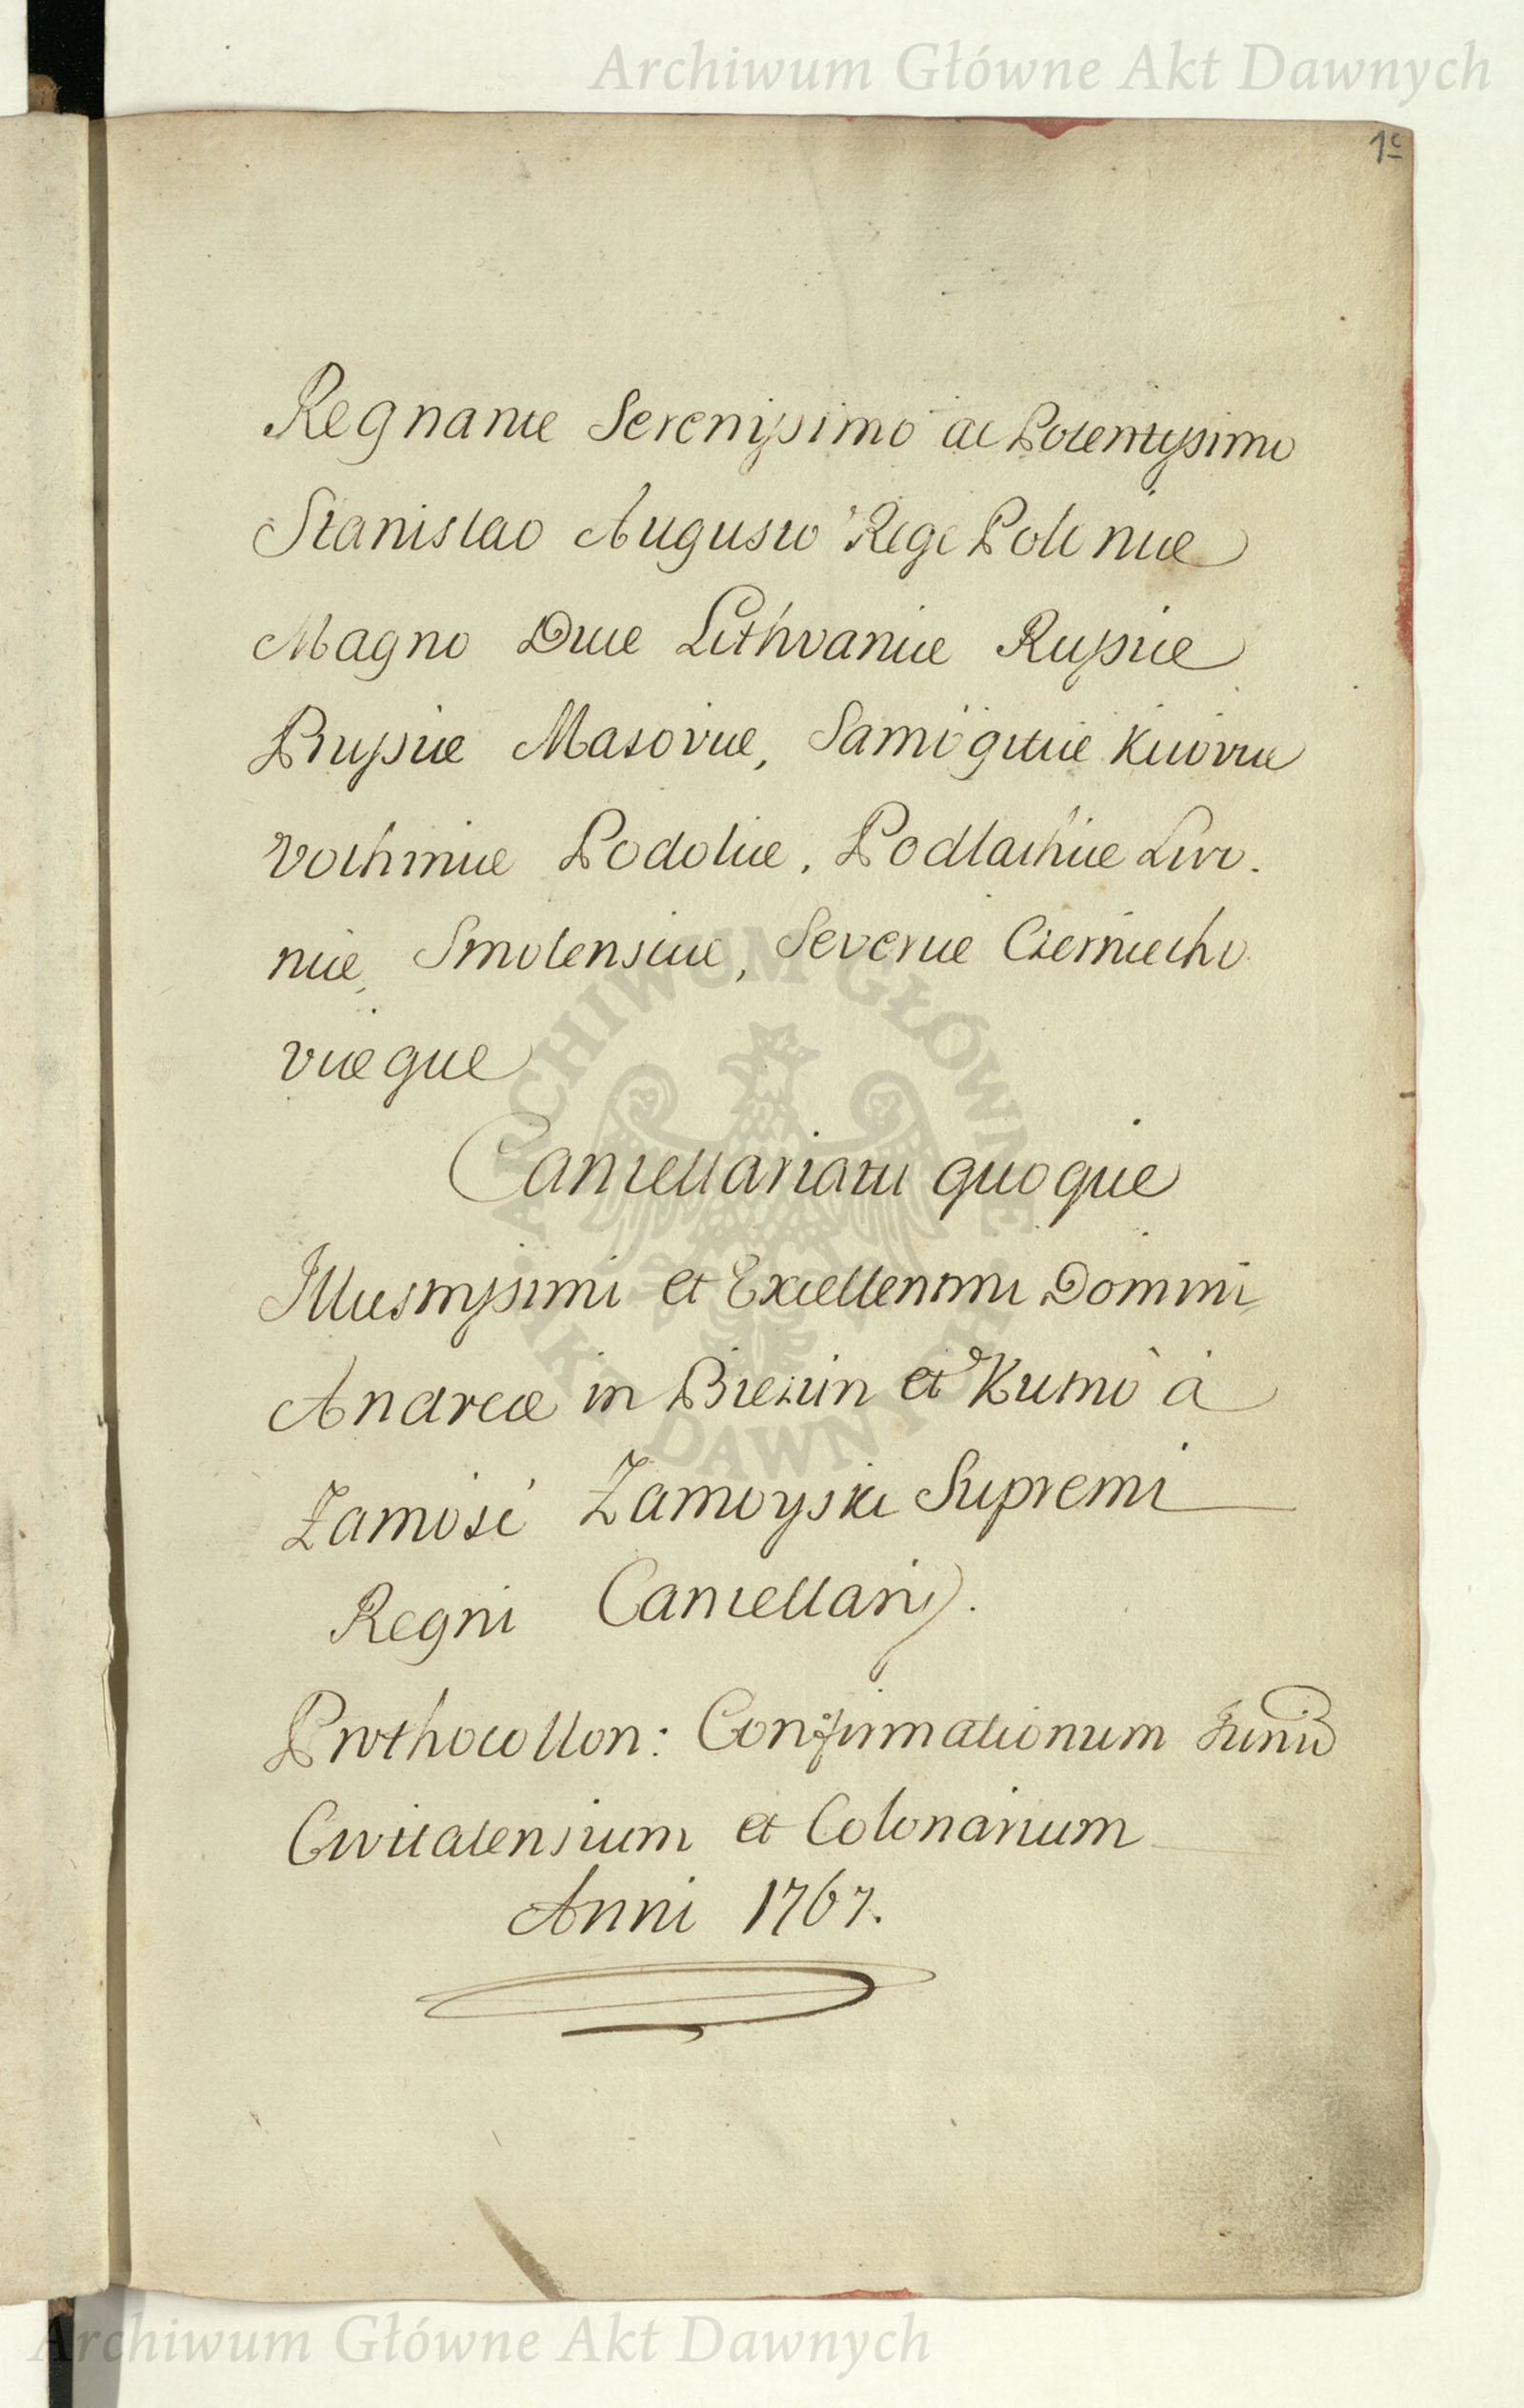 Archiwum Główne Akt Dawnych
1c
Regnante Serenissimo ac Potentissimo
Stanislao Augusto Rege Poloniæ
Magno Duce Lithvaniæ Russiæ
Prussiæ Masoviæ, Samogitiæ Kiioviæ
Volhiniæ Podoliæ, Podlachiæ Livo.
niæ, Smolensciæ, Severiæ Czerniecho
viæque
Cancellariatu quoque
Illustrissimi et Excellentmi Domini
Andreæ in Biezun et Kumo à
Zamosć Zamoyski Supremi
Regni Cancellarij.
Prothocollon: Confirmationum Juriū
Civitatensium et Colonarium
Anni 1767.
ARCHIWUM GŁÓWNE
AKT DAWNYCH
Archiwum Główne Akt Dawnych